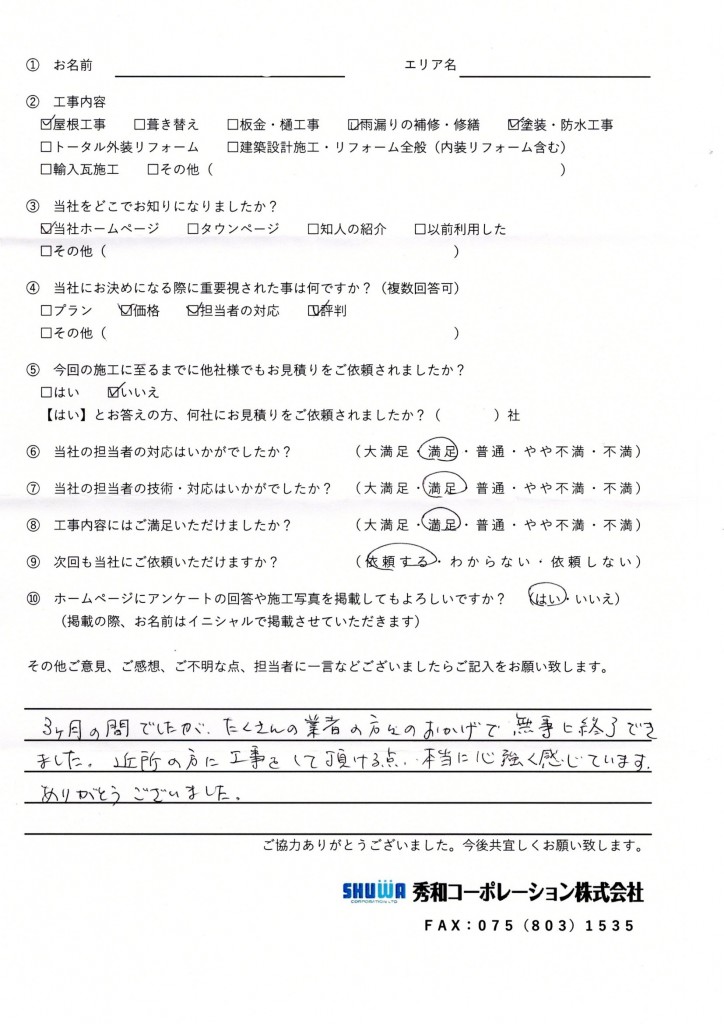 ① お名前 エリア名
② 工事内容
☑屋根工事 □葺き替え □板金・樋工事 ☑雨漏りの補修・修繕 ☑塗装・防水工事
□トータル外装リフォーム □建築設計施工・リフォーム全般（内装リフォーム含む）
□輸入瓦施工 □その他（ ）
③ 当社をどこでお知りになりましたか？
☑当社ホームページ □タウンページ □知人の紹介 □以前利用した
□その他（ ）
④ 当社にお決めになる際に重要視された事は何ですか？（複数回答可）
□プラン ☑価格 ☑担当者の対応 ☑評判
□その他（ ）
⑤ 今回の施工に至るまでに他社様でもお見積りをご依頼されましたか？
□はい ☑いいえ
【はい】とお答えの方、何社にお見積りをご依頼されましたか？（ ）社
⑥ 当社の担当者の対応はいかがでしたか？ （大満足・満足・普通・やや不満・不満）
⑦ 当社の担当者の技術・対応はいかがでしたか？ （大満足・満足・普通・やや不満・不満）
⑧ 工事内容にはご満足いただけましたか？ （大満足・満足・普通・やや不満・不満）
⑨ 次回も当社にご依頼いただけますか？ （依頼する・わからない・依頼しない）
⑩ ホームページにアンケートの回答や施工写真を掲載してもよろしいですか？ （はい・いいえ）
（掲載の際、お名前はイニシャルで掲載させていただきます）
その他ご意見、ご感想、ご不明な点、担当者に一言などございましたらご記入をお願い致します。
3ヶ月の間でしたが、たくさんの業者の方々のおかげで無事に終了でき
ました。近所の方に工事をして頂ける点、本当に心強く感じています。
ありがとうございました。
ご協力ありがとうございました。今後共宜しくお願い致します。
SHUWA CORPORATION LTD 秀和コーポレーション株式会社
FAX：075（803）1535